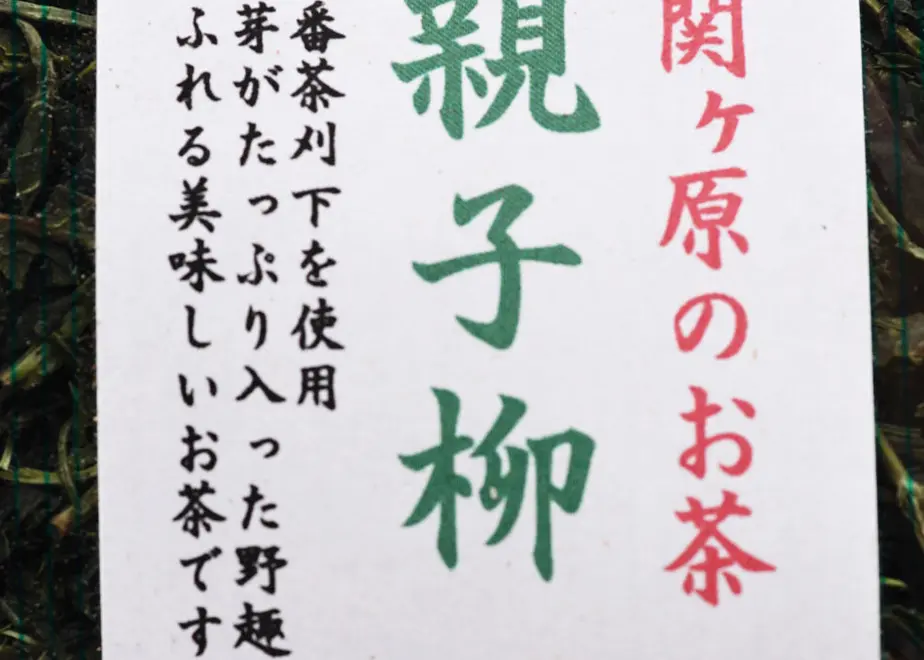 関ヶ原のお茶
親子柳
番茶刈下を使用
芽がたっぷり入った野趣
ふれる美味しいお茶です